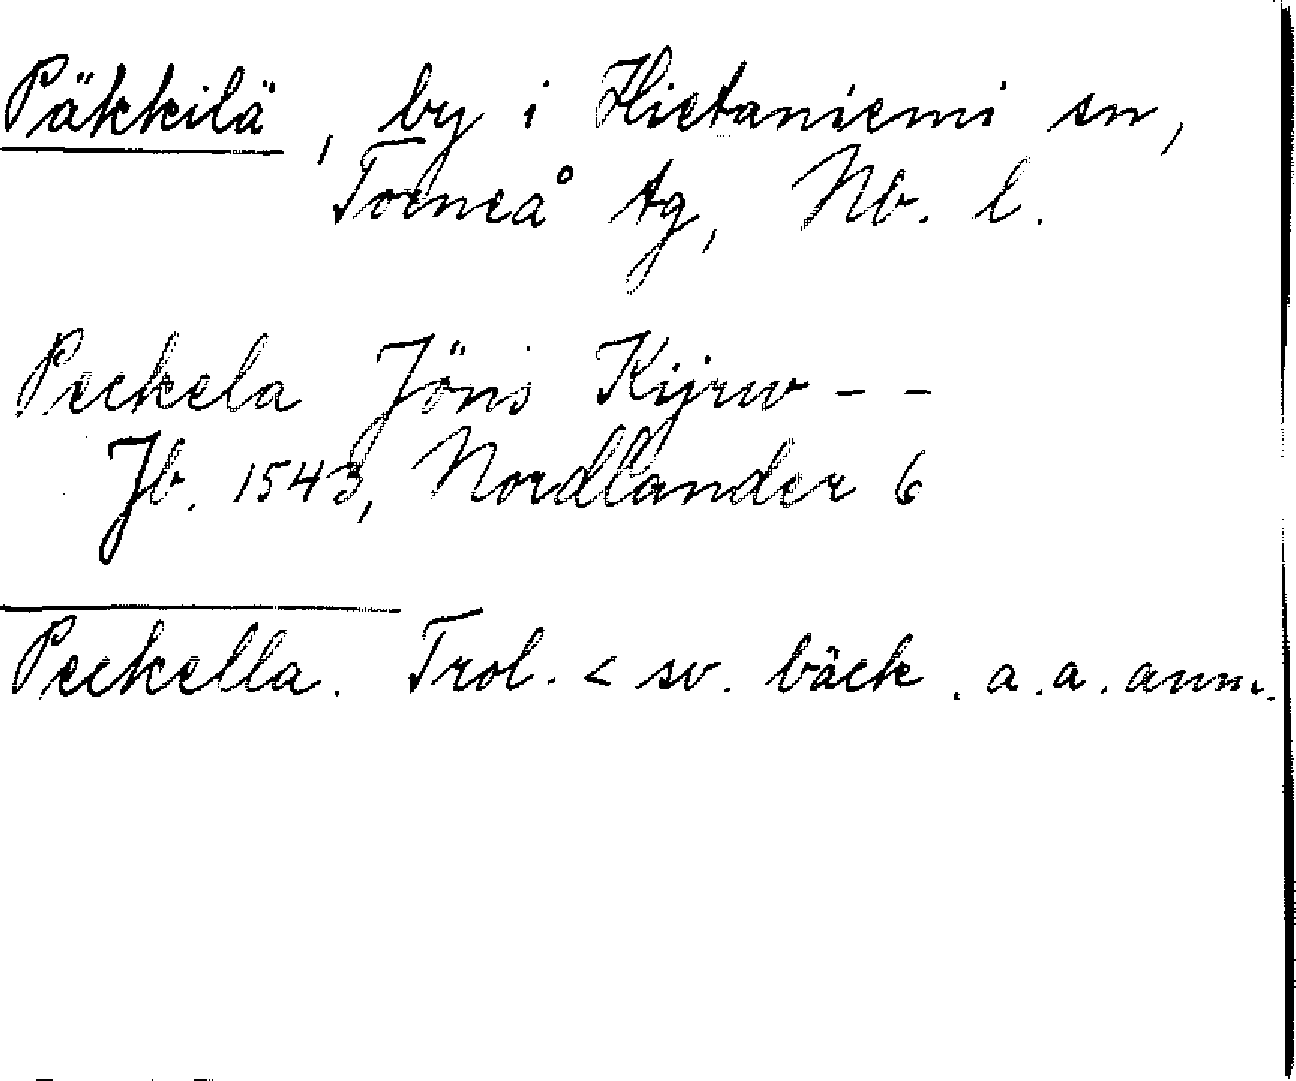 Päkkilä, by i Hietaniemi sn,
Torneå tg, Nb. l.
Peckela Jöns Kijrw - -
Jb. 1543, Nordlander 6
Peckella. Trol. < sv. bäck. a.a. anm.